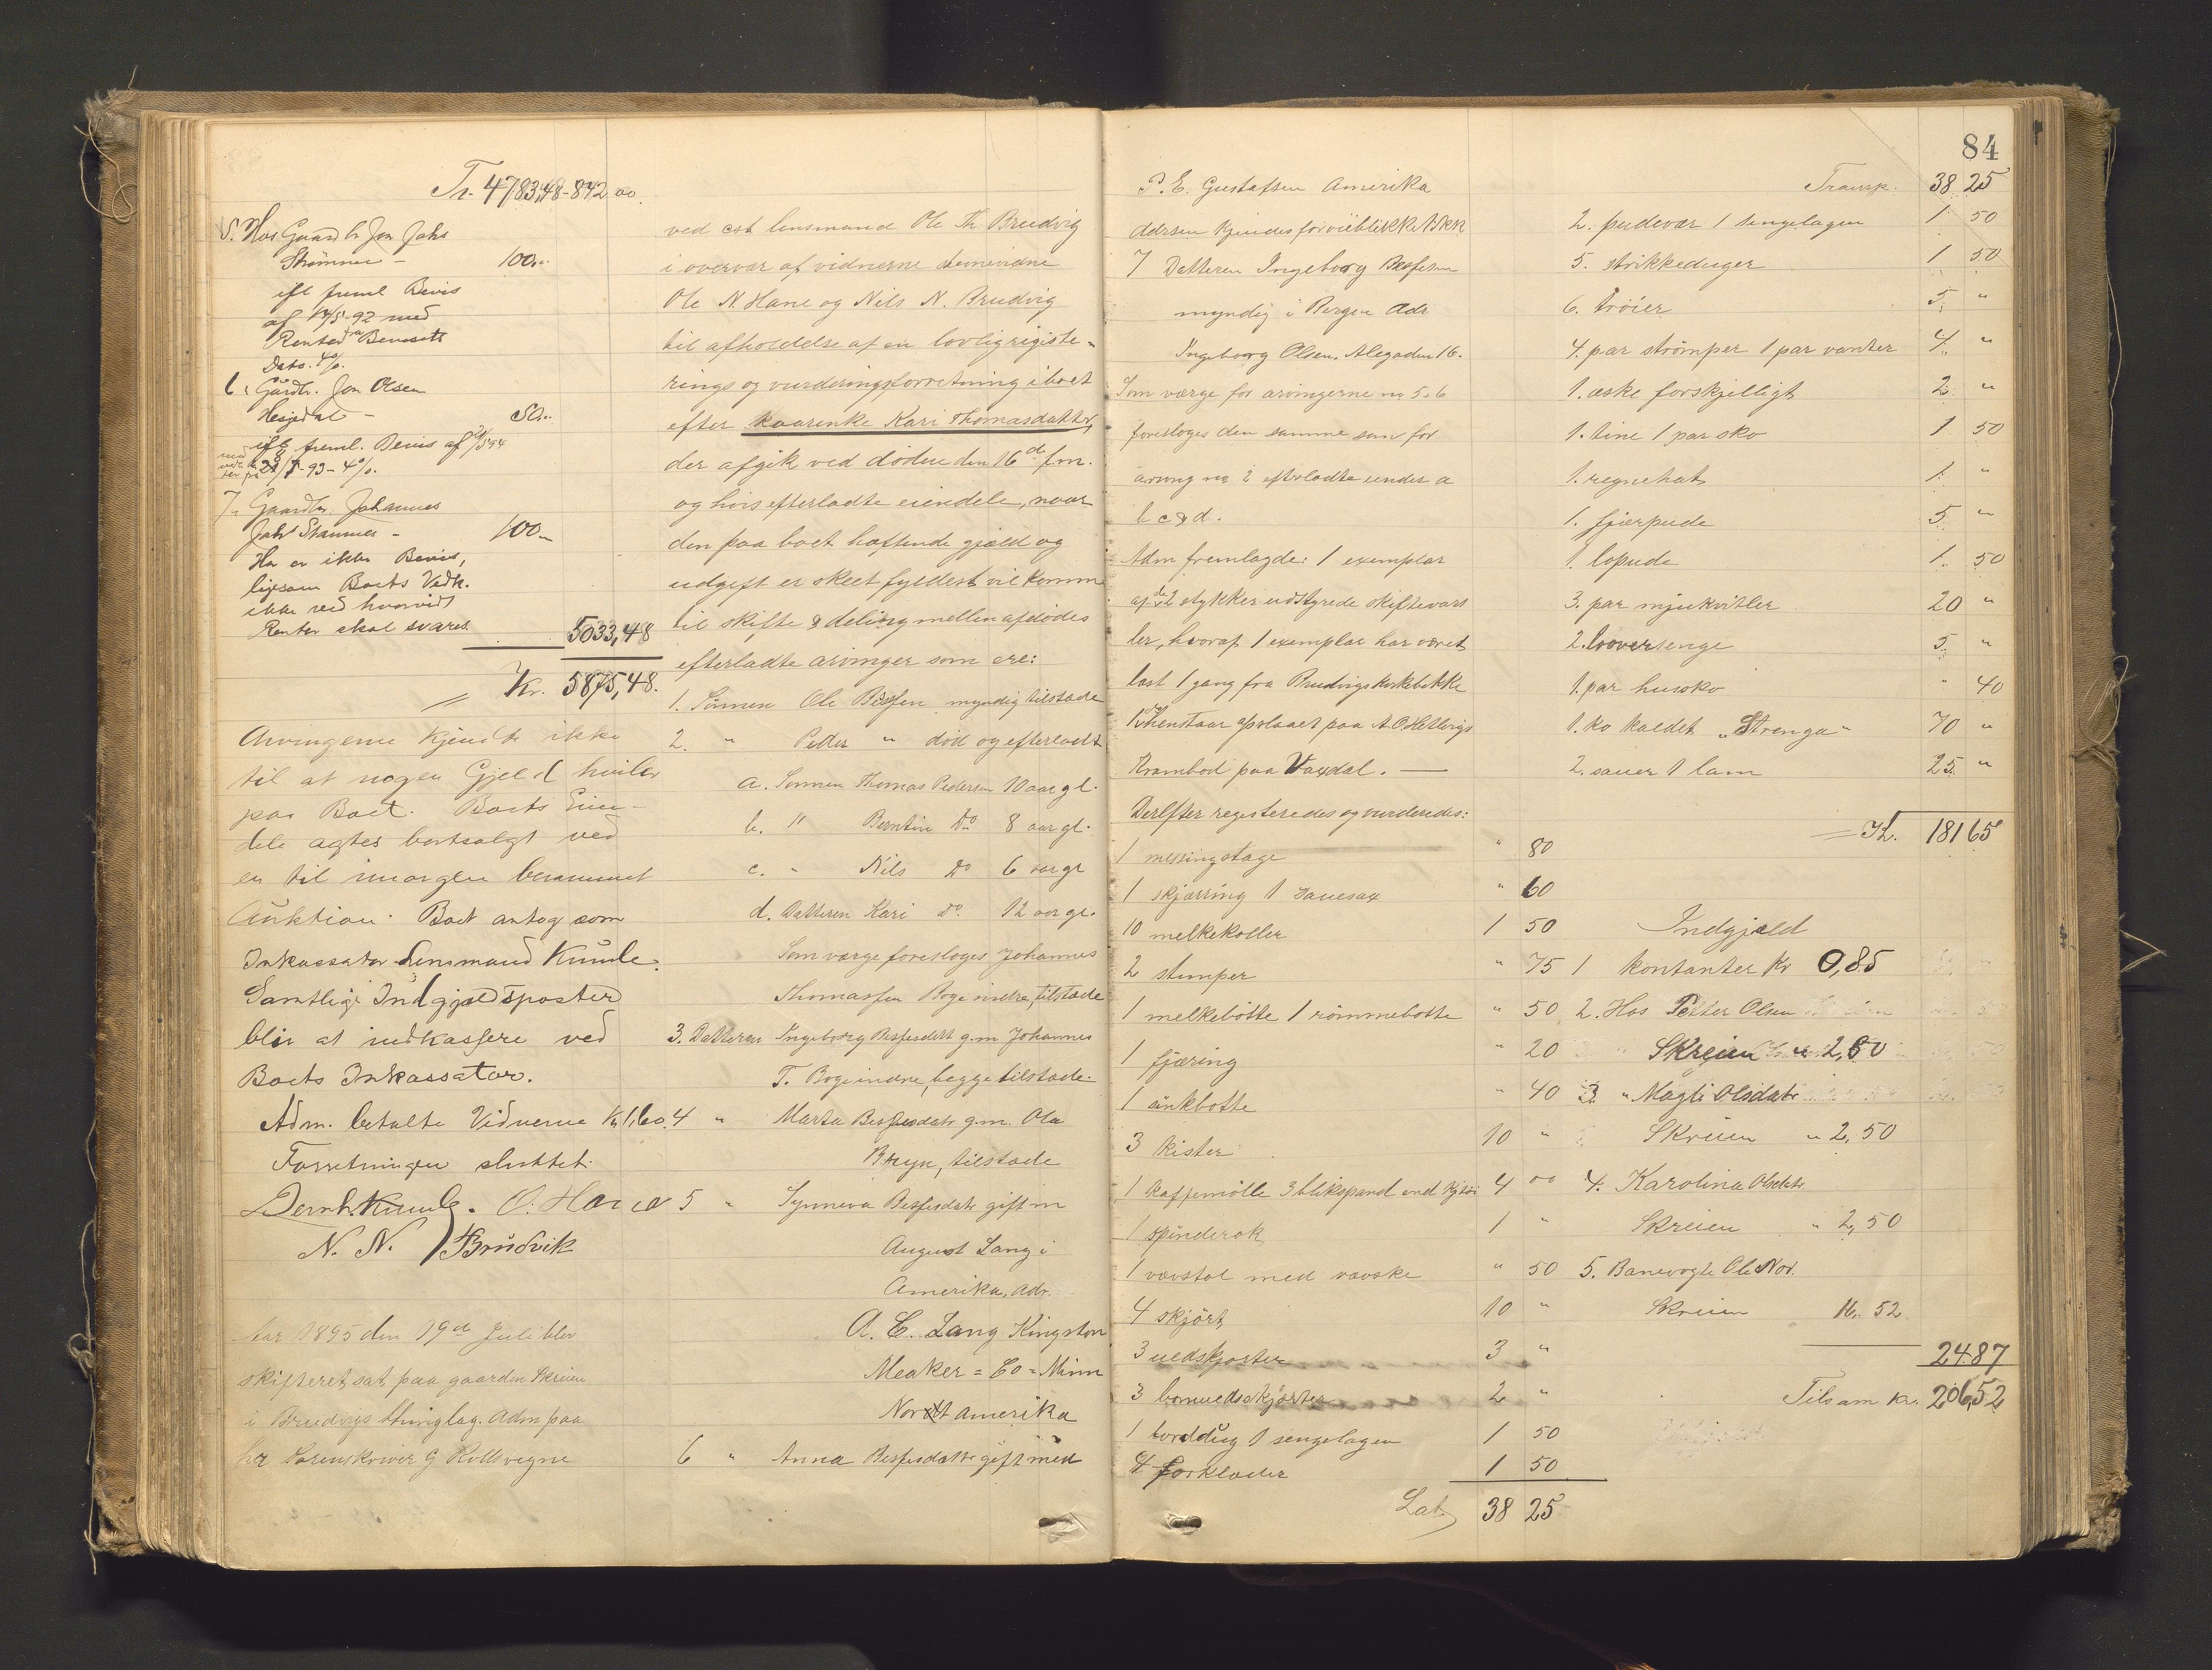 Tr. 4783,48 - 842,00.
5. Hos Gaardbr Jon Jahs
Stammer - 100,..
ifl freml Bevis
af 14/5-92 med
Renter fra Bevisets
Dato. 4%.
6. Gårdbr. Jon Olsen
Hesjedal - 50..
ifl freml. Bevis af
21/5-93 - 4%.
7. Gaardbr. Johannes
Jahs Stammer - 100..
Her er ikke Bevis,
ligesom Boets Vedk.
ikke ved hvorvidt
Renter skal svares.
5033,48
Kr. 5875,48.
Arvingerne kjendte ikke
til at nogen Gjeld hviler
paa Boet. Boets Eien-
dele agtes bortsolgt ved
en til imorgen berammet
Auktion. Boet antog som
Inkassator Lensmand Kumle.
Samtlige Indgjældsposter
blir at indkassere ved
Boets Inkassator.
Adm. betalte Vidnerne Kr 1,60.
Forretningen sluttet.
Bernh. Kumle. O. Hane
N. N. Brudvik
Aar 1895 den 19de Juli blev
skifteret sat paa gaarden Skreien
i Bruvigs thinglag. Adm paa
hr Sorenskriver G Kollsvegne
ved cst lensmand Ole Th Brudvig
i overvær af vidnerne
Ole N. Hane og Nils N. Brudvig
til afholdelse af en lovlig registe-
rings og vurderingsforretning i boet
efter kaarenke Kari Thomasdatter,
der afgik ved døden den 16de f.m.
og hvis efterladte eiendele, naar
den paa boet hæftende gjæld og
udgift er skeet fyldest vil komme
til skifte & deling mellem afdødes
efterladte arvinger som ere:
1. Sønnen Ole Besfesen myndig tilstæde
2. " Peder " død og efterladt
a. Sønnen Thomas Pedersen 10 aar gl.
b. " Berntin Do 8 aar gl.
c. " Nils Do 6 aar gl
d. Datteren Kari do. 12 aar gl.
Som værge foresloges Johannes
Thomassen Boge indre, tilstæde
3. Datteren Ingeborg Besfesdatt g.m Johannes
T. Boge indre, begge tilstæde.
4 " Marta Besfesdatr g.m. Ola
Bryn, tilstæde
5 " Synneva Besfesdatr gift m
August Lang i
Amerika, adr.
A. C. Lang Kingston
Meaker = Co = Minn
Nordt Amerika
6 " Anna Besfesdatr gift med
84
P. E. Gustafsen Amerika
adrsen kjendes for øieblikket ikke
7 Datteren Ingeborg Besfesen
myndig i Bergen Adr
Ingeborg Olsen. Alegaden 16.
Som værge for arvingerne no 5 & 6
foresloges den samme som for
arving no 2 efterladte under a
b c & d.
Adm fremlagde: 1 exemplar
af de 2 stykker udstyrede skiftevars
ler, hvoraf 1 exemplar har været
læst 1 gang fra Brudvigs kirkebakke
Krambod paa Vaxdal. —
Derefter registeredes og vurderedes:
1 messingstage " 80
1 skjærring 1 sauesax " 60
10 melkekoller 1 50
2 stamper " 75
1 melkebøtte 1 rømmebøtte " 50
1 fjæring " 20
1 ankbøtte " 40
3 kister 10 "
1 kaffemølle 3 blikspand 4 00
1 spinderok 1 "
1 vævstol med vævske " 50
4 skjørt 10 "
3 uldskjorter 3 "
3 bomuldsskjorter 2 "
1 borddug 1 sengelagen 1 50
4 forklæder 1 50
Lat. 38 25
Transp. 38 25
2. pudevar 1 sengelagen 1 50
5. strikkeduger 1 50
6. trøier 5 "
4. par strømper 1 par vanter 4 "
1. æske forskjelligt 2 "
1. tine 1 par sko 1 50
1. regnehat 1 "
1. fjærpude 5 "
1. lopude 1 50
3. par mjukvitler 20 "
2. looversenge 5 "
1. par husoko " 40
1. ko kaldet "Strenga" 70 "
2. sauer 1 lam 25 "
Kr. 181 65
Indgjæld
1 kontanter Kr 0,85
2. Hos Petter Olsen
Skreien " 2,50
3 " Magli Olsdatr
Skreien " 2,50
4. Karolina Olsdatr
Skreien " 2,50
5. Banevogte Ole Nor.
Skreien 16,52
24 87
Tilsam Kr. 206,52